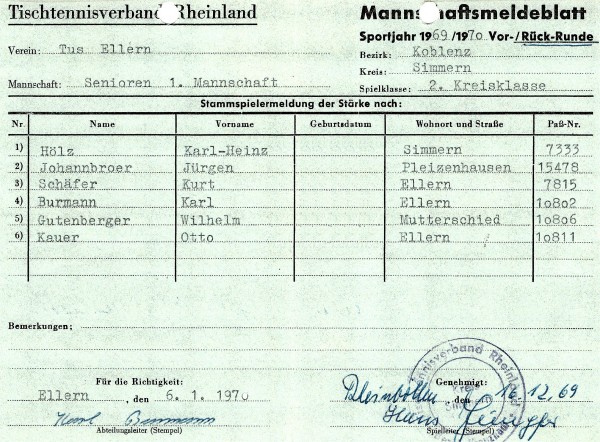 Tischtennisverband Rheinland
Mannschaftsmeldeblatt
Sportjahr 1969/1970 Vor-/Rück-Runde
Verein: Tus Ellern
Bezirk: Koblenz
Kreis: Simmern
Mannschaft: Senioren 1. Mannschaft
Spielklasse: 2. Kreisklasse
Stammspielermeldung der Stärke nach:
Nr. Name Vorname Geburtsdatum Wohnort und Straße Paß-Nr.
1) Hölz Karl-Heinz Simmern 7333
2) Johannbroer Jürgen Pleizenhausen 15478
3) Schäfer Kurt Ellern 7815
4) Burmann Karl Ellern 10802
5) Gutenberger Wilhelm Mutterschied 10806
6) Kauer Otto Ellern 10811
Bemerkungen:
Für die Richtigkeit:
Genehmigt:
Ellern, den 6.1.1970
, den 16.12.69
Karl Burmann
Hans
Abteilungsleiter (Stempel)
Spielleiter (Stempel)